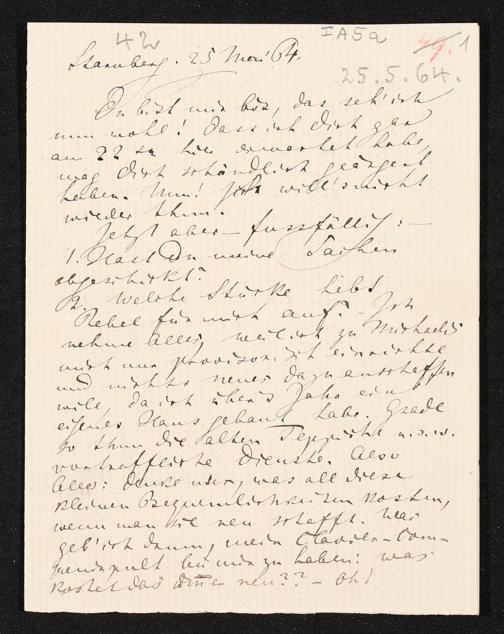 42
IA5a
49. 1
Starnberg. 25 Mai 64.
25.5.64.
Du bist mir bös, das seh' ich
nun wohl! Dass ich Dich gar
am 22 sn hier erwartet habe,
mag Dich schändlich geärgert
haben. Nun! Ich will's nicht
wieder thun.
Jetzt aber – fussfällig: –
1. Hast Du meine Sachen
abgeschickt?
2. Welche Stücke hebt
Rebel für mich auf? – Ich
nehme Alles, weil ich zu Michaelis
mich nur provisorisch einrichte
und nichts neues dazu anschaffen
will, da ich über's Jahr ein
eigenes Haus gebaut habe. Grade
so thun die alten Teppiche u.s.w.
vortreffliche Dienste. Also
Alles: denke nur, was all diese
kleinen Bequemlichkeiten kosten,
wenn man sie neu schafft. Was
geb' ich drum, mein Clavier-Com-
ponirpult bei mir zu haben: was
kostet das neu?? – Oh!